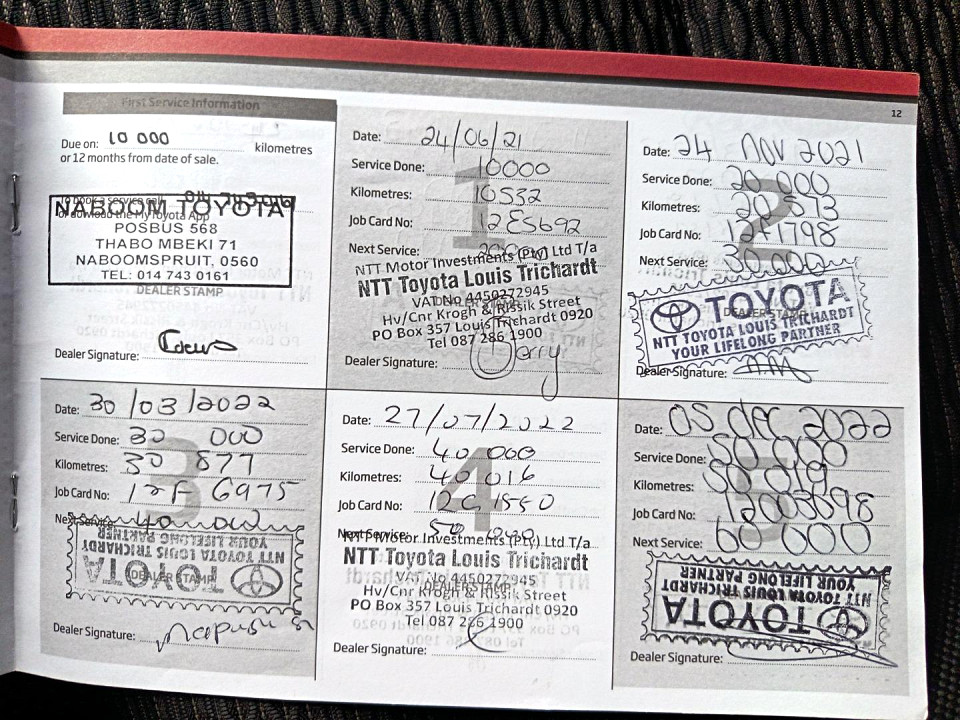 12
First Service Information
Due on: 10 000 kilometres
or 12 months from date of sale.
To book a service call
or download the MyToyota App
NABOOM TOYOTA
POSBUS 568
THABO MBEKI 71
NABOOMSPRUIT, 0560
TEL: 014 743 0161
DEALER STAMP
Dealer Signature:
1
Date: 24/06/21
Service Done: 10000
Kilometres: 10532
Job Card No: 12E5692
Next Service:
NTT Motor Investments (Pty) Ltd T/a
NTT Toyota Louis Trichardt
VAT No 4450272945
Hv/Cnr Krogh & Rissik Street
PO Box 357 Louis Trichardt 0920
Tel 087 286 1900
Dealer Signature: Jerry
2
Date: 24 NOV 2021
Service Done: 20 000
Kilometres: 20 593
Job Card No: 12F1798
Next Service: 30.000
TOYOTA
DEALER STAMP
NTT TOYOTA LOUIS TRICHARDT
YOUR LIFELONG PARTNER
Dealer Signature:
3
Date: 30/03/2022
Service Done: 30 000
Kilometres: 30 877
Job Card No: 12F 6975
Next Service: 40 000
YOUR LIFELONG PARTNER
NTT TOYOTA LOUIS TRICHARDT
TOYOTA
DEALER STAMP
Dealer Signature:
4
Date: 27/07/2022
Service Done: 40 000
Kilometres: 40 016
Job Card No: 12G 1550
Next Service: 50 000
NTT Motor Investments (Pty) Ltd T/a
NTT Toyota Louis Trichardt
VAT No 4450272945
DEALER STAMP
Hv/Cnr Krogh & Rissik Street
PO Box 357 Louis Trichardt 0920
Tel 087 286 1900
Dealer Signature:
5
Date: 05 dec 2022
Service Done: 50 000
Kilometres: 50 019
Job Card No:
Next Service: 60 000
YOUR LIFELONG PARTNER
NTT TOYOTA LOUIS TRICHARDT
TOYOTA
Dealer Signature: